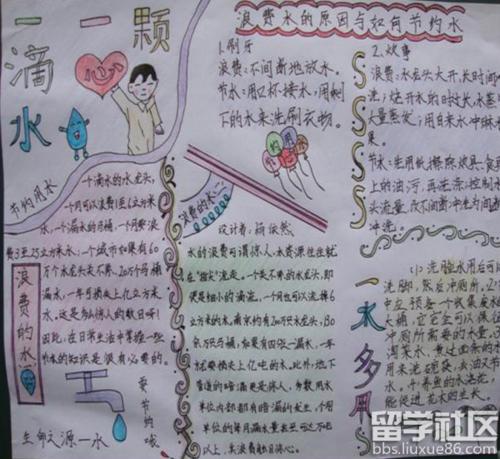 一一颗
滴心
水
浪费水的原因与如何节约水
1.刷牙
浪费:不间断地放水。
节水:用口杯接水,用剩
下的水来洗刷衣物。
2.炊事
浪费:水龙头大开,长时间
洗;烧开水的时过长,水蒸
大量蒸发;用自来水冲淋
果。
节水:先用纸擦除炊具、食具
上的油污,再洗涤;控制
头流量,改不间断冲洗为间断
冲洗。
节约用水
一个滴水的水龙头,
一个月可以浪费1至6立方米
水,一个漏水的马桶,一个月要浪
费3至25立方米水;一个城市如果有60
万个水龙头关不严、20万个马桶
漏水,一年可损失上亿立方米
水,这是多么惊人的数目呀!
因此,在日常生活中掌握一些
节水的知识是很有必要的。
浪费的水
要
节
约
哦
生命之源—水
浪费的水(二)
节约用水
设计者:
水的浪费可谓惊人,水资源往往就
在"指尖"流走。一关不严的水龙头,即
便是细小的滴流,一个月也可以流掉6
立方米的水。南京约有200万只水龙头,130
余万只马桶,如果有四个一漏水,一年
就要损失上亿吨的水。此外,地下
管道的暗漏更是惊人,有数用水
单位内部都有暗漏的发生,个用
单位的每月漏水量甚至可达不地
以上,实浪费触目惊心。
一水多用
(1)洗脸水用后可以
洗脚,然后冲厕所。
中应预备一个收集废水
大桶,它完全可以保证
冲厕所需要的水量。
淘米水、煮过面条的水
用来洗碗筷,去油又节
水。养鱼的水浇花,
能促进花木的生长。
留学社区
bbs.liuxue86.com